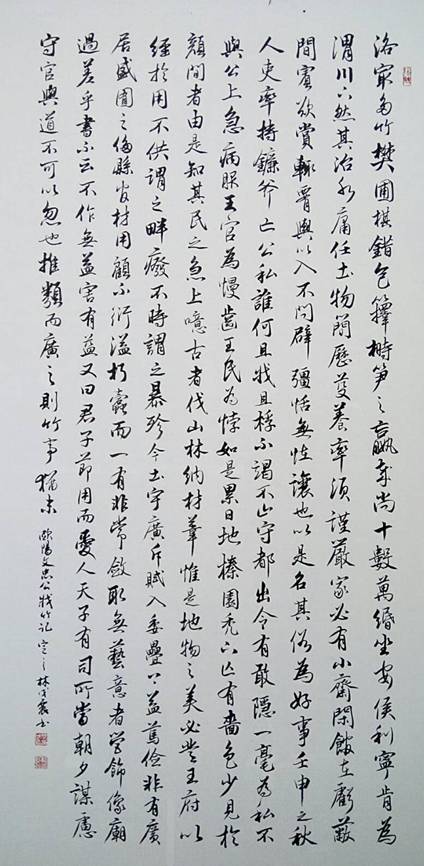 洛最多竹樊圃棋錯包籜榯笋之贏歲尚十數萬緡坐安侯利寧肯為
渭川下然其治水庸任土物簡歷芟養率須謹嚴家必有小齋閑館在虧蔽
間賓欲賞輒腰輿以入不問辟彊恬無怪讓也以是名其俗為好事壬申之秋
人吏率持鐮斧亡公私誰何且戕且桴不竭不止守都出令有敢隱一毫為私不
與公上急病服王官為慢齒王民為悖如是累日地榛園禿下亡有嗇色少見於
顏間者由是知其民之急上噫古者伐山林納材葦惟是地物之美必登王府以
經於用不供謂之畔廢不時謂之暴殄今土宇廣斥賦入委疊上益篤儉非有廣
居盛囿之侈縣官材用顧不衍溢朽蠹而一有非常斂取無藝意者營飾像廟
過差乎書不云不作無益害有益又曰君子節用而愛人天子有司所當朝夕謀慮
守官與道不可以忽也推類而廣之則竹事猶末
歐陽文忠公戕竹記 林書